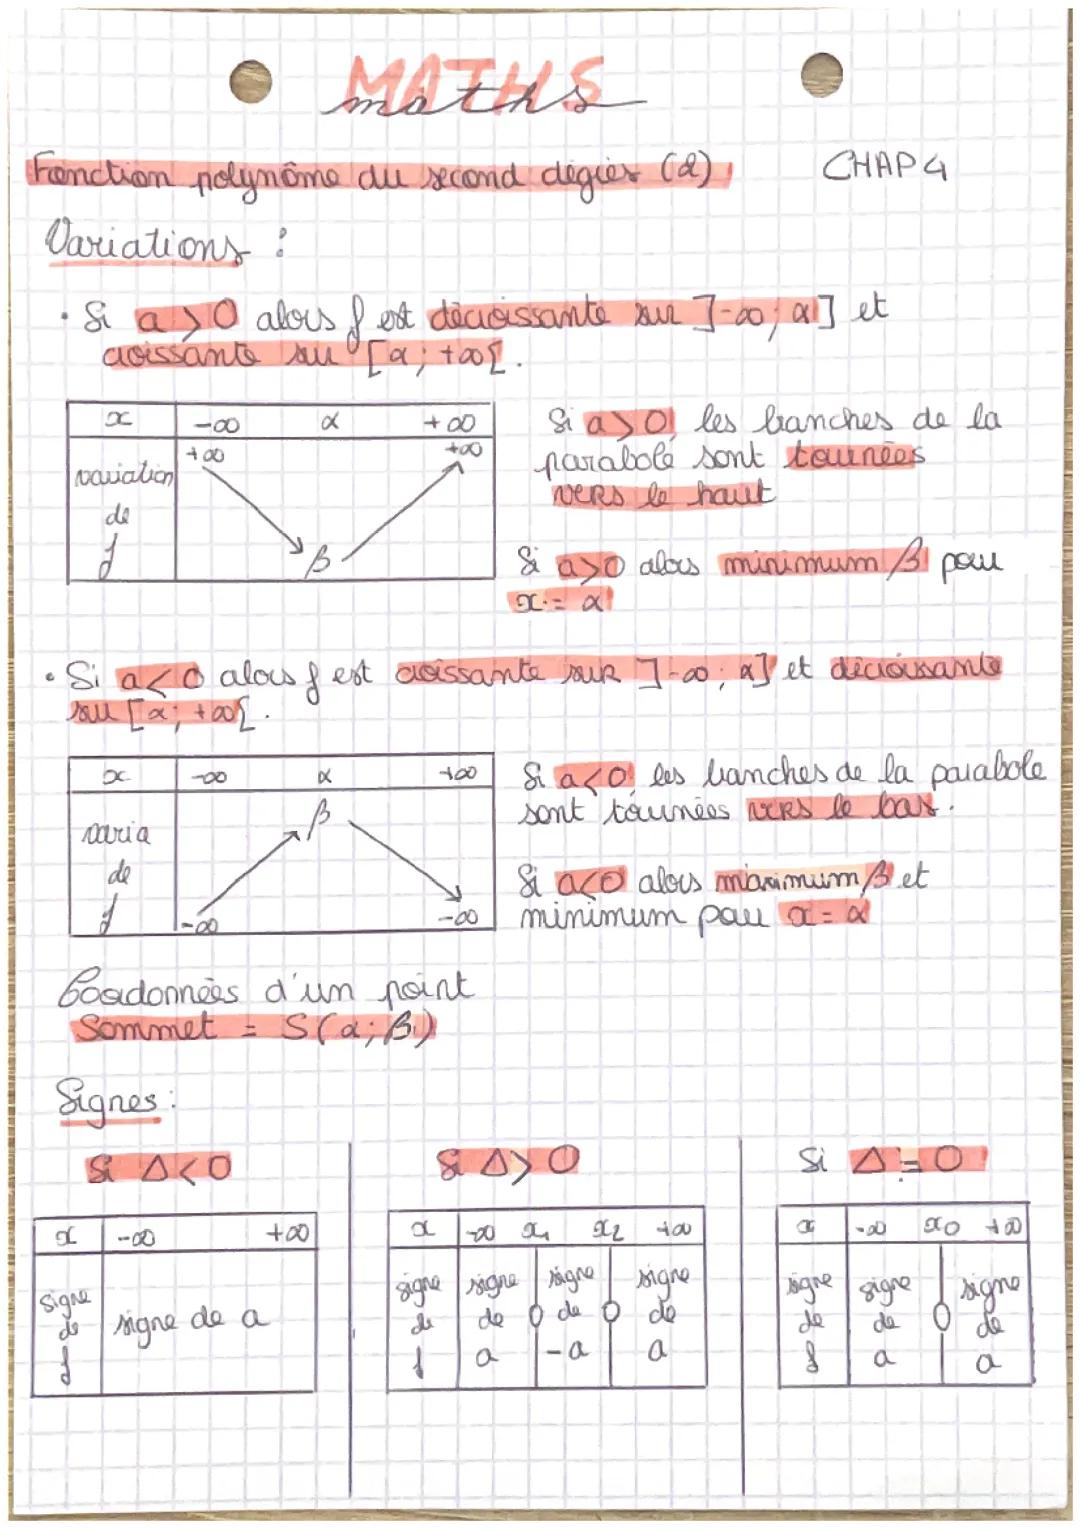 MATHS
maths
Fonction polynôme du second degrés (2)
CHAP 4
Variations :
• Si a > 0 alors f est décroissante sur ]-∞; α] et
croissante sur [α; +∞[.
x -∞ α +∞
variation de f +∞ β +∞
Si a > 0, les branches de la
parabole sont tournées
vers le haut
Si a>0 alors minimum β pour
x = α
• Si a < 0 alors f est croissante sur ]-∞; α] et décroissante
sur [α; +∞[.
x -∞ α +∞
varia de f -∞ β -∞
Si a<0, les branches de la parabole
sont tournées vers le bas.
Si a<0 alors maximum β et
minimum pour x = α
Coordonnées d'un point
Sommet = S(α; β)
Signes :
Si Δ < 0
x -∞ +∞
signe de f signe de a
Si Δ > 0
x -∞ x1 x2 +∞
signe de f signe de a 0 signe de -a 0 signe de a
Si Δ = 0
x -∞ x0 +∞
signe de f signe de a 0 signe de a